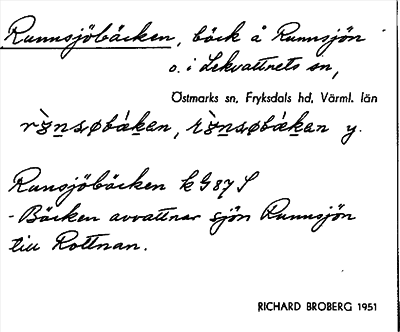 Runnsjöbäcken, bäck å Runnsjön
o. i Lekvattnets sn,
Östmarks sn, Fryksdals hd, Värml. län
Runsjöbäcken kG87S
- Bäcken avvattnar sjön Runnsjön
till Rottnan.
RICHARD BROBERG 1951